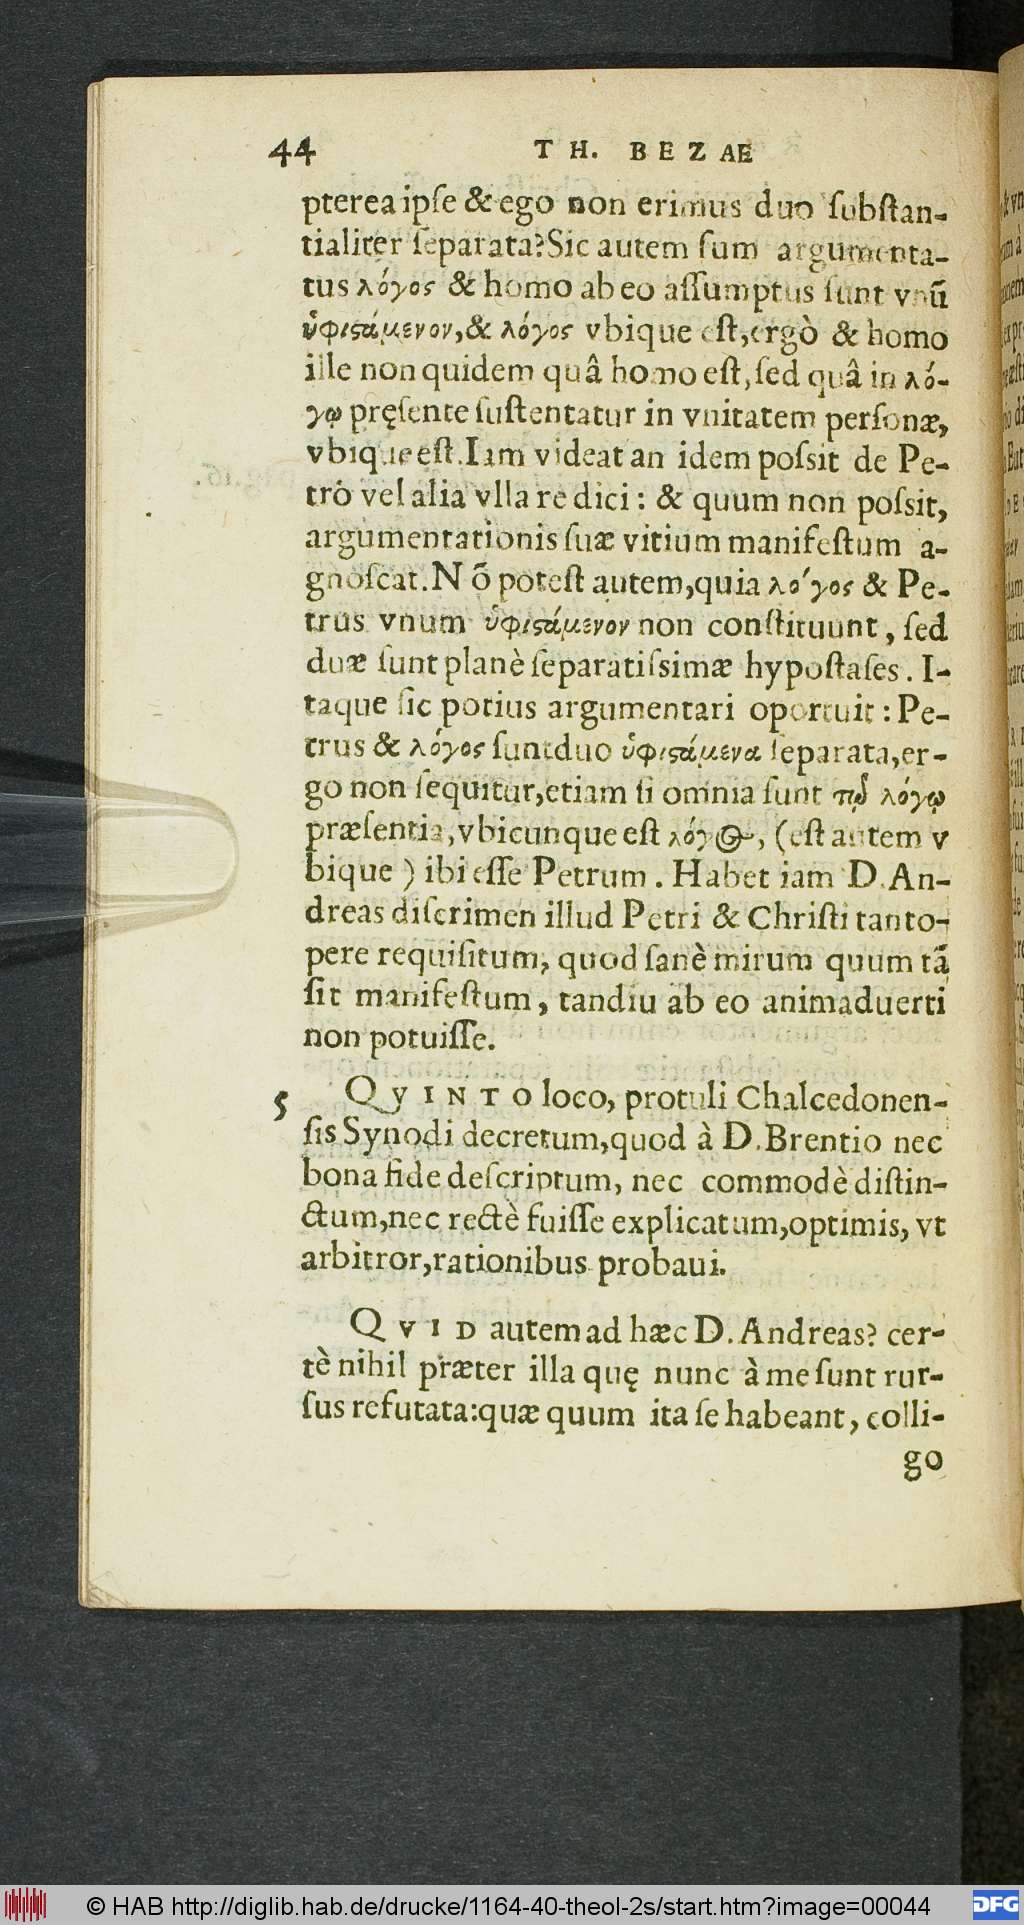 44 TH. BEZAE
pterea ipse & ego non erimus duo substan-
tialiter separata? Sic autem sum argumenta-
tus λόγος & homo ab eo assumptus sunt vnū
ὑφιϛάμενον, & λόγος vbique est, ergò & homo
ille non quidem quâ homo est, sed quâ in λό-
γῳ pręsente sustentatur in vnitatem personæ,
vbique est. Iam videat an idem possit de Pe-
tro vel alia vlla re dici: & quum non possit,
argumentationis suæ vitium manifestum a-
gnoscat. Nō potest autem, quia λόγος & Pe-
trus vnum ὑφιϛάμενον non constituunt, sed
duæ sunt planè separatissimæ hypostases. I-
taque sic potius argumentari oportuit: Pe-
trus & λόγος sunt duo ὑφιϛάμενα separata, er-
go non sequitur, etiam si omnia sunt τῷ λόγῳ
præsentia, vbicunque est λόγος, (est autem v
bique) ibi esse Petrum. Habet iam D. An-
dreas discrimen illud Petri & Christi tanto-
pere requisitum, quod sanè mirum quum tā
sit manifestum, tandiu ab eo animaduerti
non potuisse.
5 QVINTO loco, protuli Chalcedonen-
sis Synodi decretum, quod à D. Brentio nec
bona fide descriptum, nec commodè distin-
ctum, nec rectè fuisse explicatum, optimis, vt
arbitror, rationibus probaui.
QVID autem ad hæc D. Andreas? cer-
tè nihil præter illa quę nunc à me sunt rur-
sus refutata: quæ quum ita se habeant, colli-
go
© HAB http://diglib.hab.de/drucke/1164-40-theol-2s/start.htm?image=00044
DFG